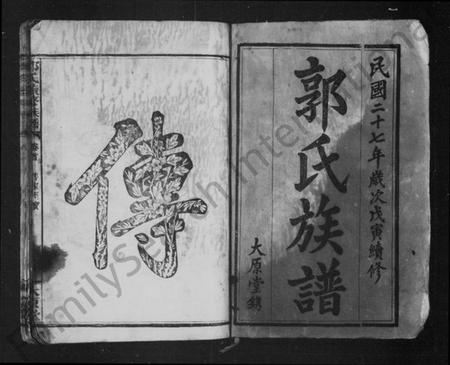 民國二十七年歲次戊寅續修
郭氏族譜
大原堂鐫
傳
FamilySearch International